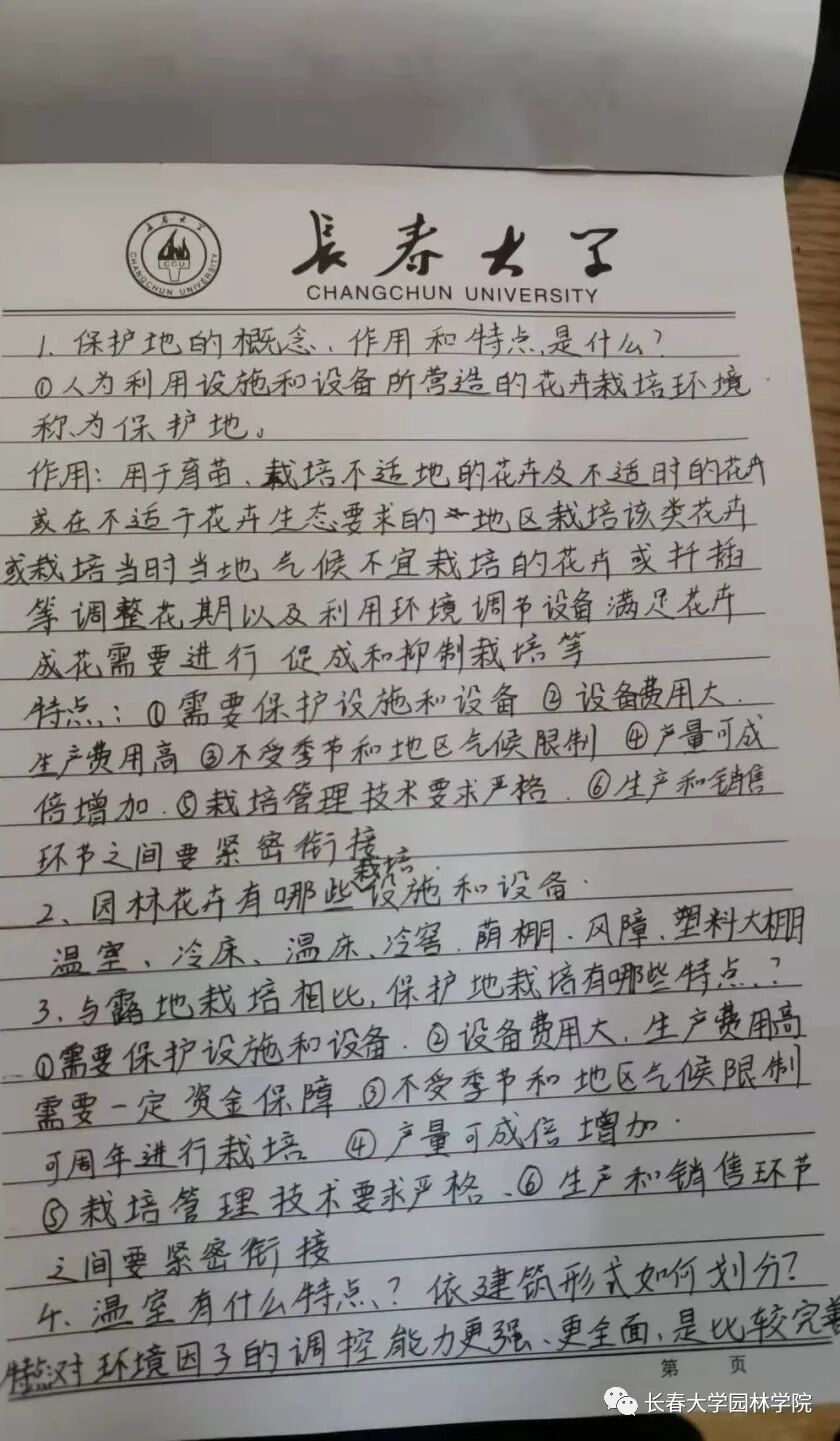 長春大学
CHANGCHUN UNIVERSITY
長春大学
CCU
CHANGCHUN UNIVERSITY
1、保护地的概念、作用和特点是什么?
①人为利用设施和设备所营造的花卉栽培环境
称为保护地。
作用:用于育苗、栽培不适地的花卉及不适时的花卉
或在不适于花卉生态要求的地区栽培该类花卉
或栽培当时当地气候不宜栽培的花卉或扦插
等调整花期以及利用环境调节设备满足花卉
成花需要进行促成和抑制栽培等
特点:①需要保护设施和设备 ②设备费用大.
生产费用高 ③不受季节和地区气候限制 ④产量可成
倍增加.⑤栽培管理技术要求严格.⑥生产和销售
环节之间要紧密衔接
2、园林花卉有哪些栽培设施和设备.
温室、冷床、温床、冷窖.荫棚.风障、塑料大棚
3、与露地栽培相比,保护地栽培有哪些特点?
①需要保护设施和设备.②设备费用大,生产费用高
需要一定资金保障 ③不受季节和地区气候限制
可周年进行栽培 ④产量可成倍增加.
⑤栽培管理技术要求严格、⑥生产和销售环节
之间要紧密衔接
4、温室有什么特点?依建筑形式如何划分?
特点:对环境因子的调控能力更强、更全面,是比较完善
第 页
长春大学园林学院